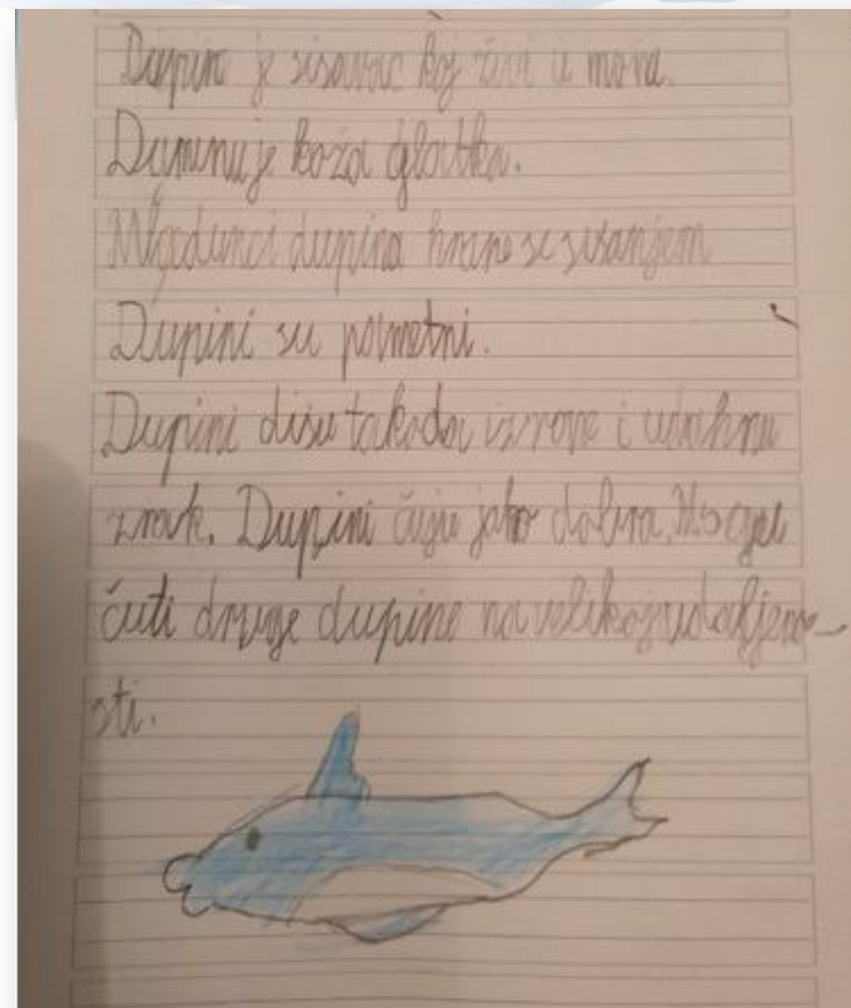 Dupin je sisavac koj živi u moru.
Dupinu je koža glatka.
Mladunci dupina hrane se sisanjem
Dupini su pametni.
Dupini dišu tako da izrone i udahnu
zrak. Dupini čuju jako dobra. Mogu
čuti druge dupine na velikoj udaljeno-
sti.